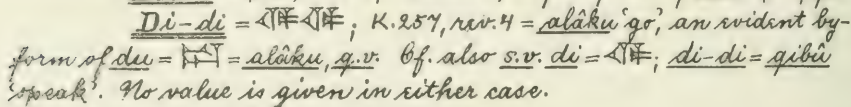 Di-di = 𒁲𒁲; K. 257, rev. 4 = alâku 'go', an evident by-
form of du = 𒁺 = alâku, q.v. Cf. also s.v. di = 𒁲; di-di = qibû
'speak'. No value is given in either case.